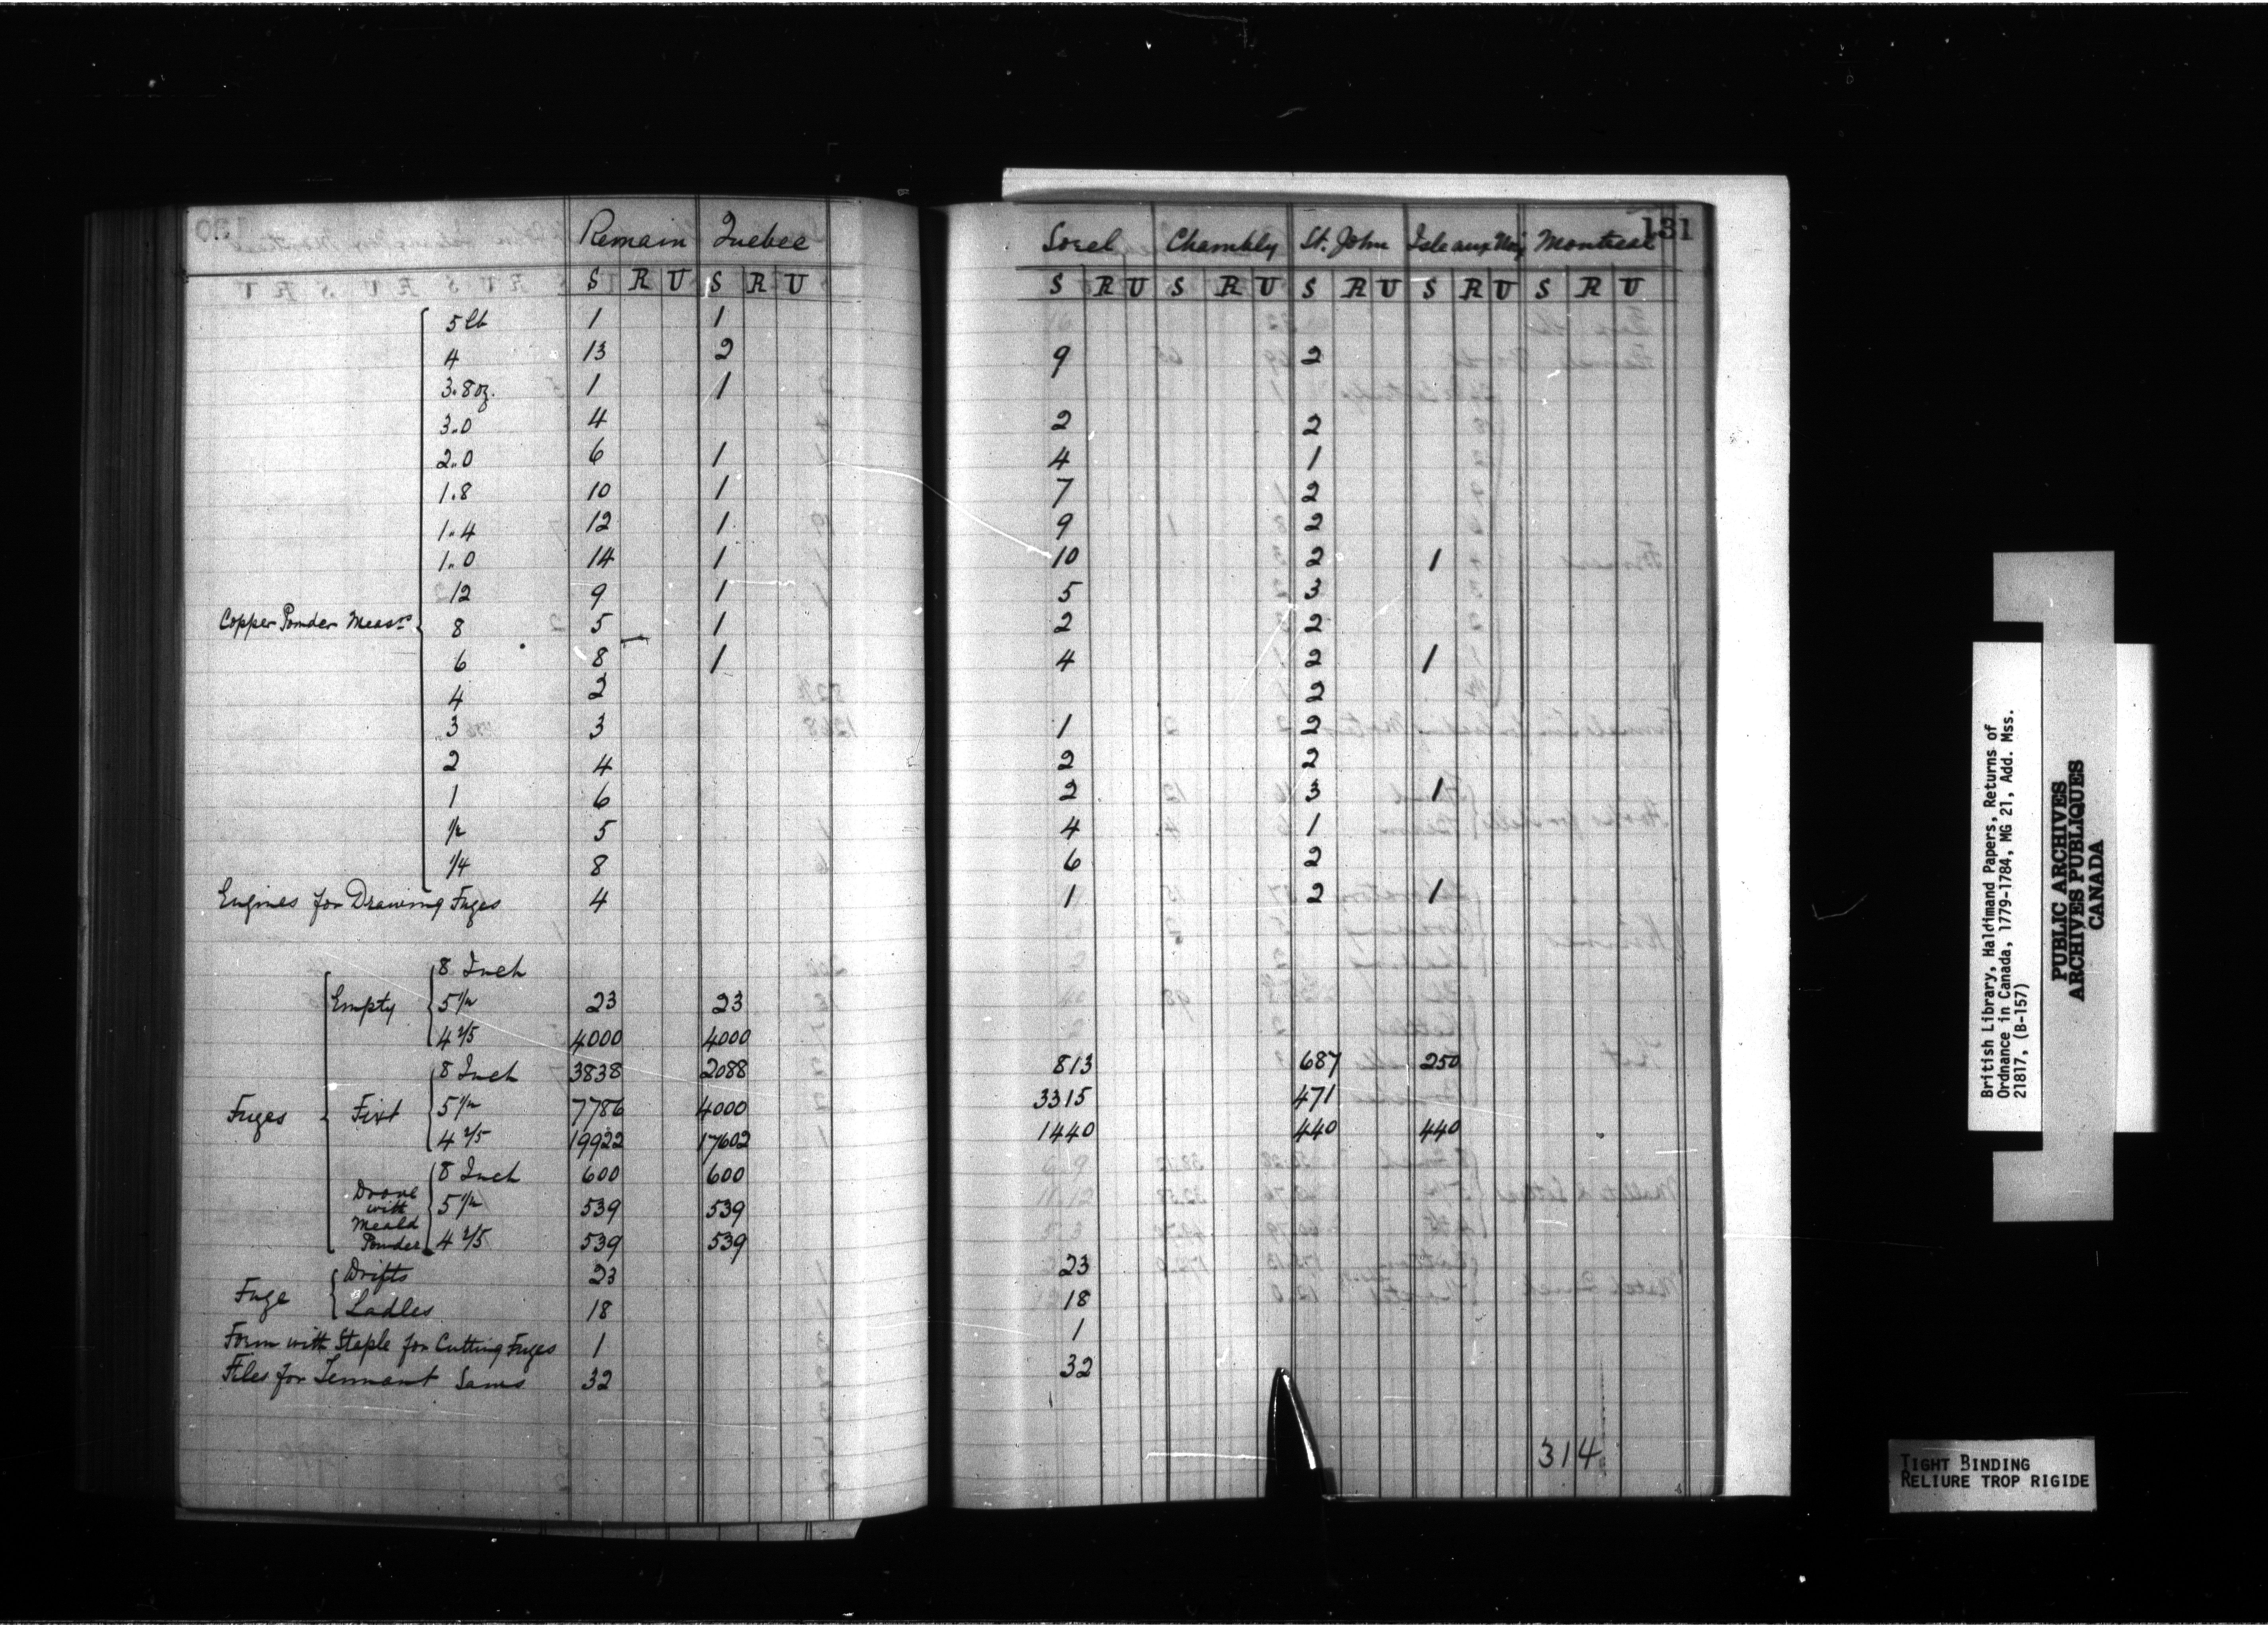 131
Remain Quebec Sorel Chambly St. John Isle aux Noix Montreal
S R U S R U S R U S R U S R U S R U S R U
5 lb 1 1
4 13 2 9 2
3.8 oz. 1 1
3.0 4 2 2
2.0 6 1 4 1
1.8 10 1 7 2
1.4 12 1 9 2
1.0 14 1 10 2 1
12 9 1 5 3
Copper Powder Measrs 8 5 1 2 2
6 8 1 4 2 1
4 2 2
3 3 1 2
2 4 2 2
1 6 2 3 1
1/2 5 4 1
1/4 8 6 2
Engines for Drawing Fuzes 4 1 2 1
8 Inch
Empty 5 1/2 23 23
4 2/5 4000 4000
8 Inch 3838 2088 813 687 250
Fuzes Fixt 5 1/2 7786 4000 3315 471
4 2/5 19922 17602 1440 440 440
8 Inch 600 600
Drove with Meald Powder 5 1/2 539 539
4 2/5 539 539
Fuze Drifts 23 23
Ladles 18 18
Form with Staple for Cutting Fuzes 1 1
Files for Tennant Saws 32 32
314
British Library, Haldimand Papers, Returns of
Ordnance in Canada, 1779-1784, MG 21, Add. Mss.
21817, (B-157)
PUBLIC ARCHIVES
ARCHIVES PUBLIQUES
CANADA
TIGHT BINDING
RELIURE TROP RIGIDE